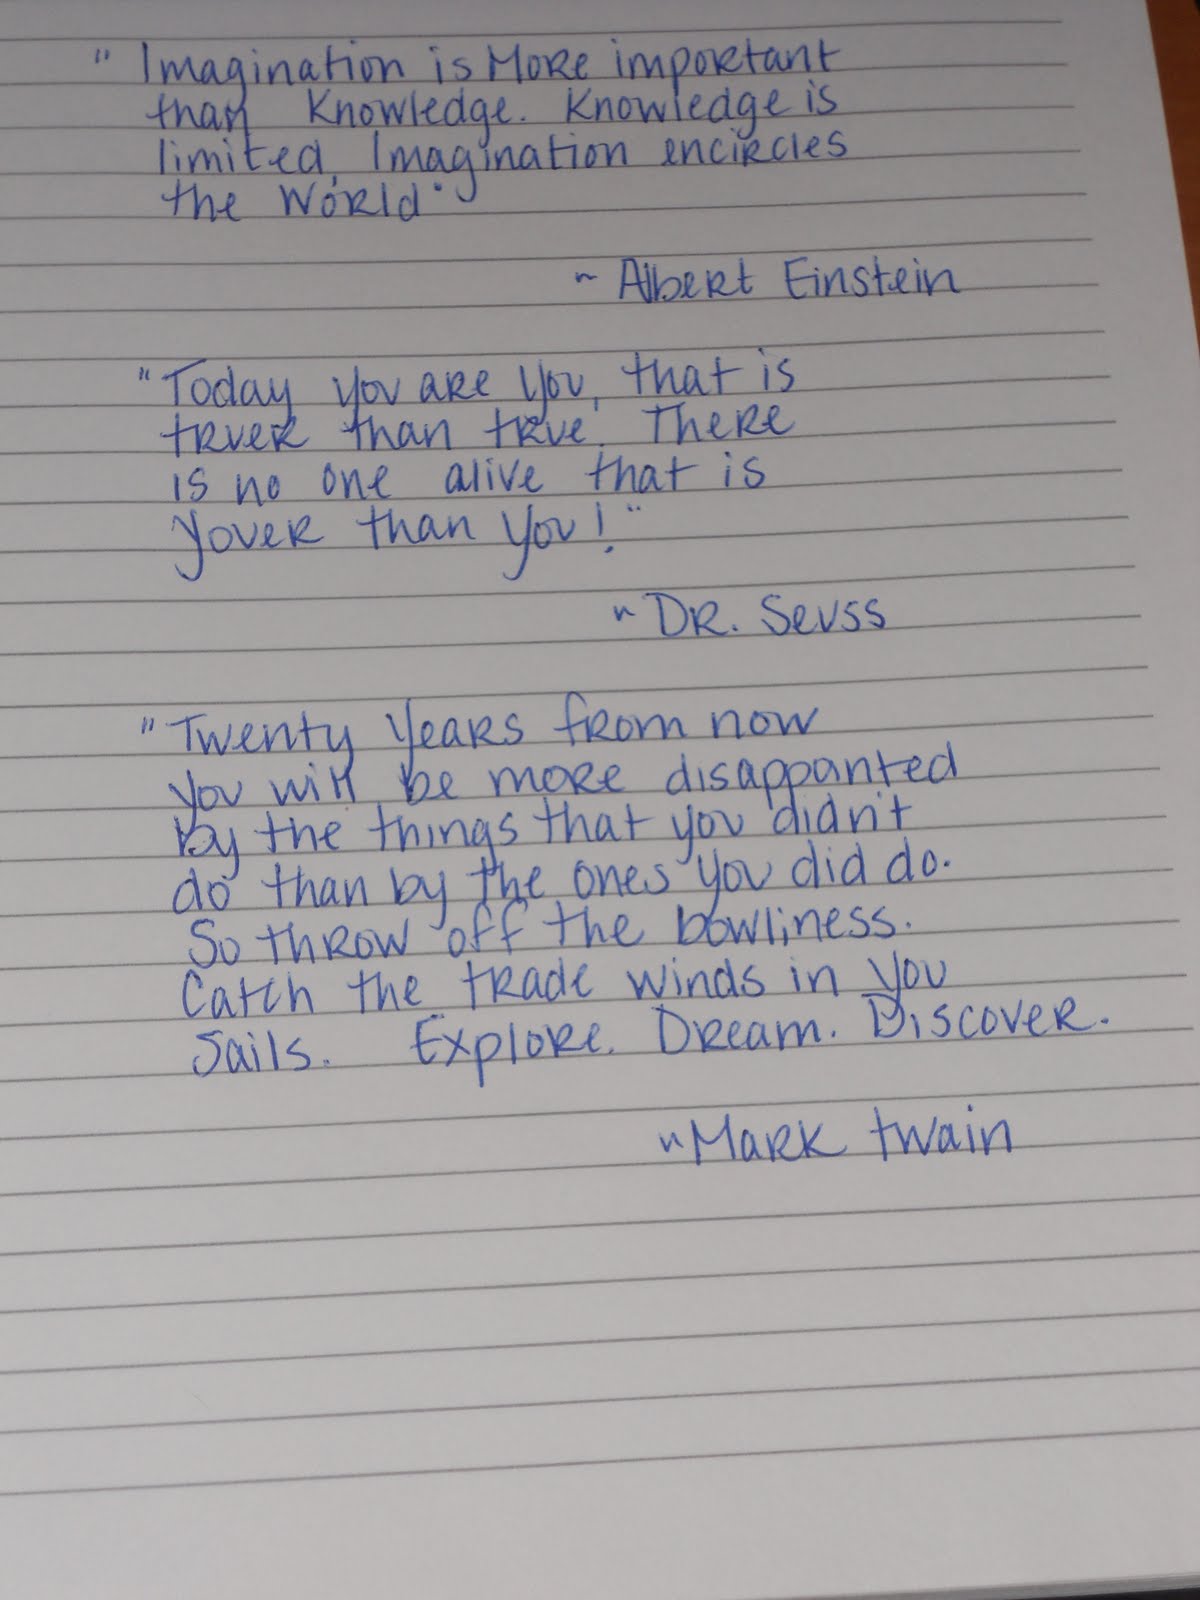 " Imagination is More important
than Knowledge. Knowledge is
limited, Imagination encircles
the World."
~ Albert Einstein
"Today you are you, that is
truer than true. There
is no one alive that is
youer than you!"
~ Dr. Seuss
"Twenty years from now
you will be more disappointed
by the things that you didn't
do than by the ones you did do.
So throw off the bowliness.
Catch the trade winds in you
sails. Explore. Dream. Discover.
~ Mark twain